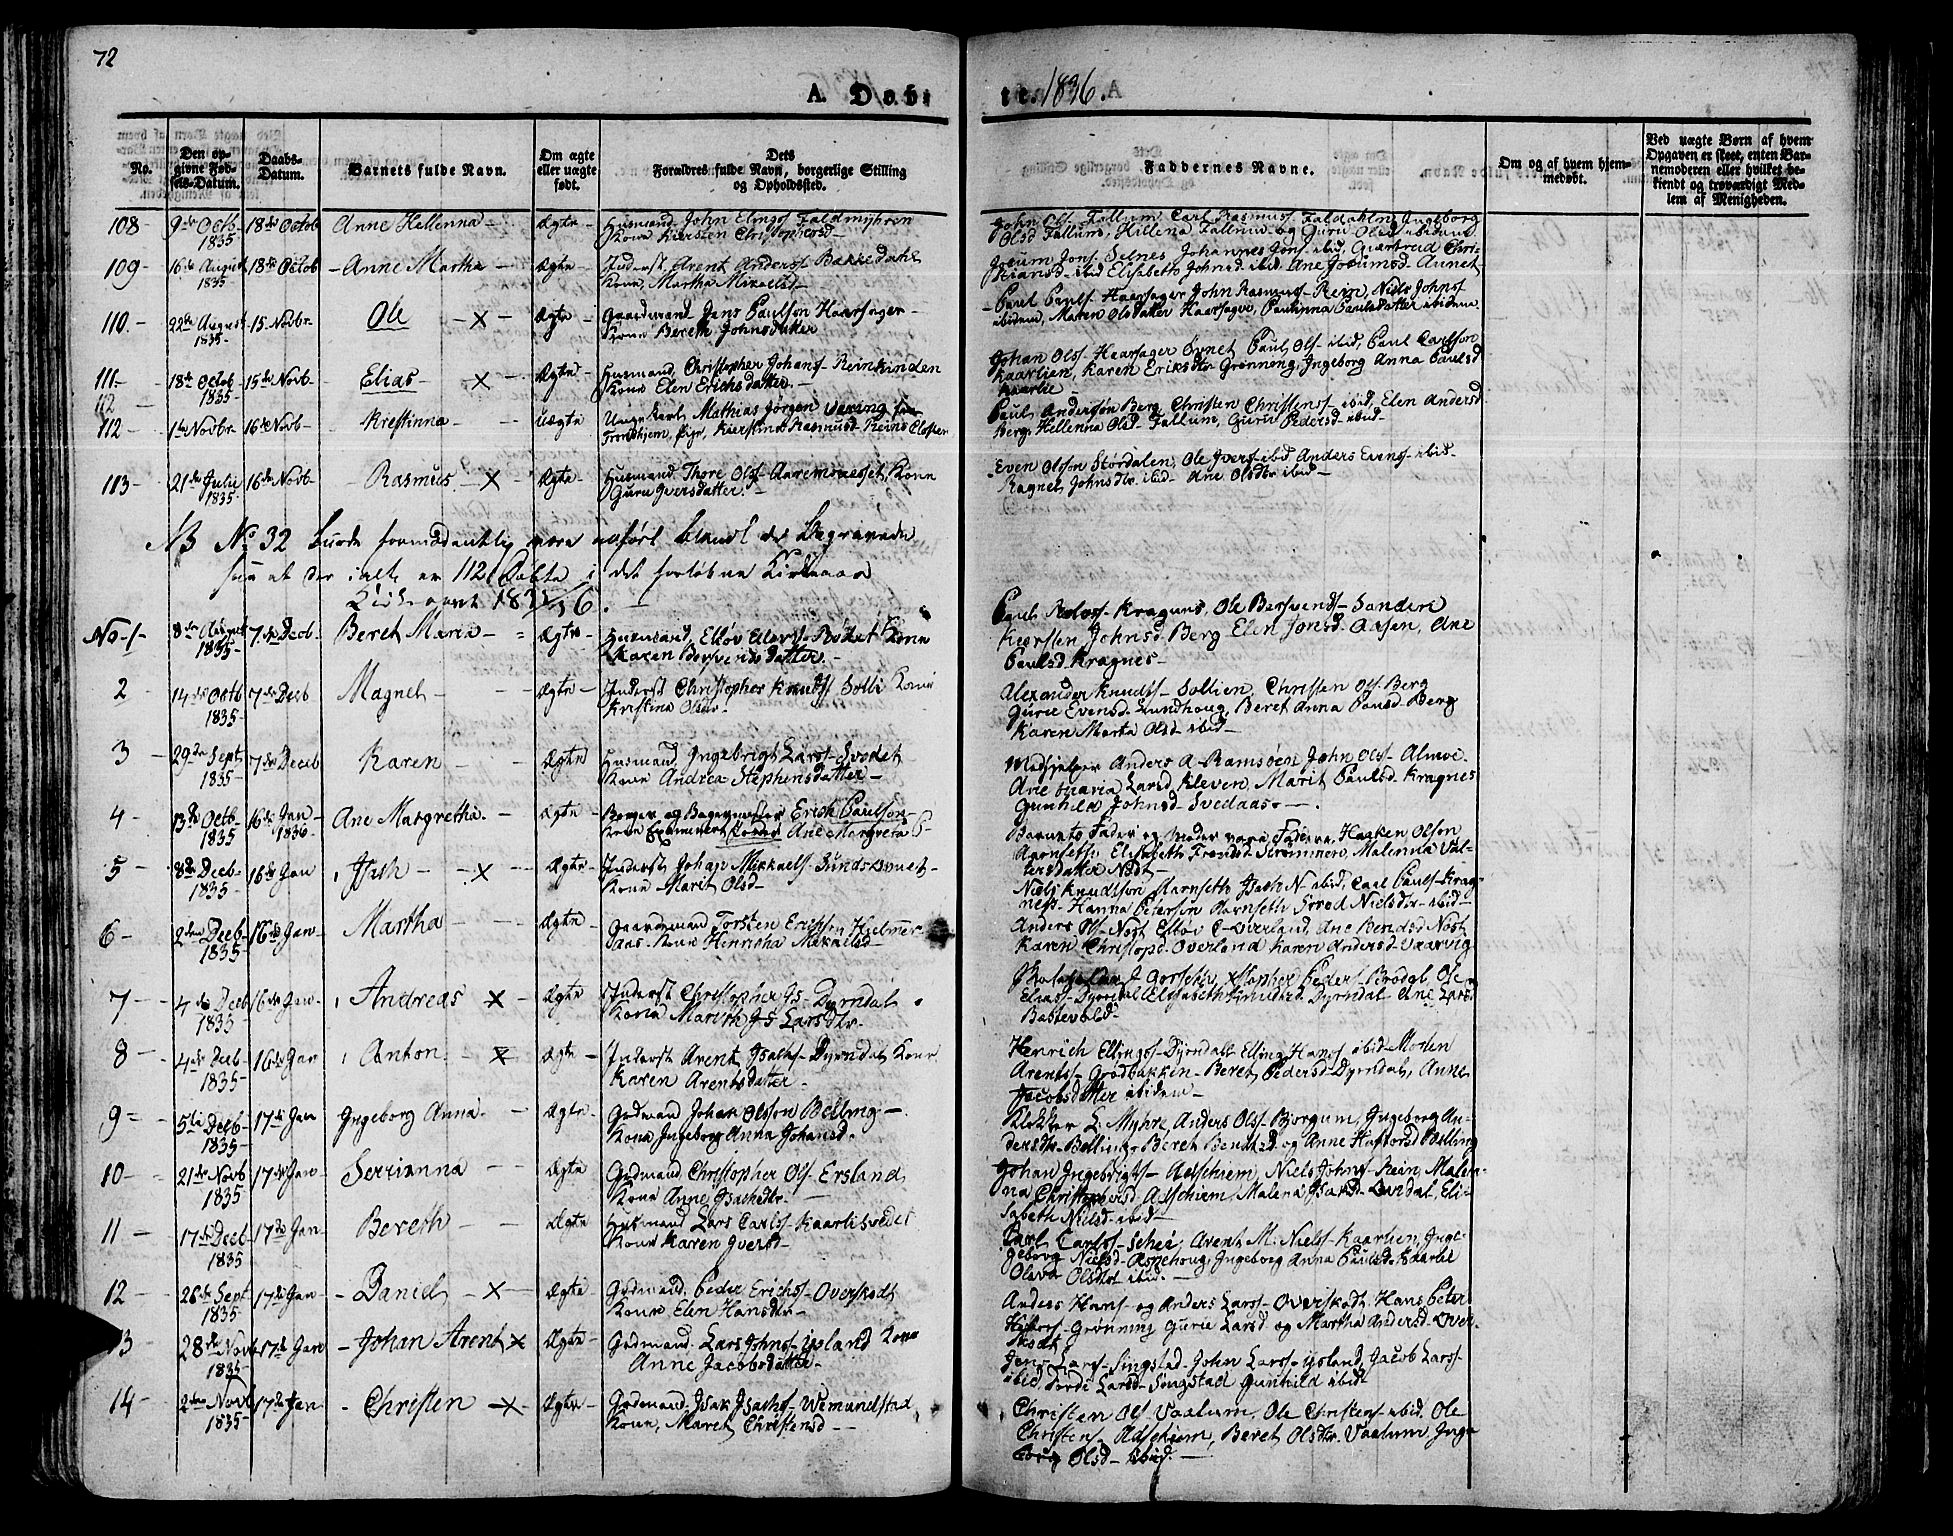 72
A. Døb:
te. 1836.
No.
Den op-
givne Fød-
sels-Datum.
Daabs-
Datum.
Barnets fulde Navn.
Om ægte
eller uægte
født.
Dets
Forældres fulde Navn, borgerlige Stilling
og Opholdssted.
Faddernes Navne.
Om og af hvem hjem-
medøbt.
Ved uægte Børn af hvem
Opgaven er skeet, enten Bar-
nemoderen eller hvilket be-
kiendt og troværdigt Med-
lem af Menigheden.
108 9de Octb 1835 18de Octob Anne Hellenna Ægte Husmand John Elingss Faldmyhren
Kone Kiersten Christophersd
John Ols Fallum, Carl Rasmuss Faldahlen, Ingeborg
Olsd Fallum, Hellena Fallum og Guru Olsd ibidem
109 16de August 1835 18de Octob Anne Martha Ægte Inderst Arent Anderss Bakkedahl
Kone, Martha Mikaelsd
Joeum Jons Selnes Johannes Jons ibid, Guertrud Chri-
stiansd ibid Elisabeth Johnsd ibid Ane Joeumsd Aunet
110 22de August 1835 15 Novbr Ole X Ægte Gaardmand Jens Paulsøn Haarsager
Kone Bereth Johnsdatter
Paul Pauls Haarsager John Rasmuss Rein, Niels Johns
ibidem, Maren Olsdatter Haarsager, Paulinna Paulsdatter ibidem
111 18de Octob 1835 15de Novb Elias X Ægte Husmand Christopher Johans Reinkinden
Kone Elen Erichsdatter
Johan Ols Haarsager Øvnet, Paul Ols ibid, Paul Carlsøn
Kaarlien, Karen Eriksdtr Grønneng, Ingeborg Anna Paulsd
Kaarlie
112
112 1de Novbr 16de Novb Kristinna uægte Ungekarl Mathias Jørgen Vering fra
Trondhjem, Pige, Kierstine Rasmusd Reins Closter
Paul Andersøn Berg, Christen Christens ibid, Elen Andersd
Berg, Hellenna Olsd Fallum, Guru Pedersd ibid
113 21de Julii 1835 16de Novb Rasmus X Ægte Husmand Thore Ols Aaremoesset, Kone
Guru Iversdatter
Even Olsson Stordalen, Ole Ivers ibid Anders Evens ibid
Ragnel Johnsdtr ibid Ane Olsdtr ibid
NB No 32 burde formodentlig være anført blandt de Begravede
saa at der ialt er 112 Døbte i det forløbne Kirkeaar
Kirkeaaret 1835/36.
No 1 8de August 1835 7de Decb Beret Maria Ægte Husmand, Elløv Elevs Rødset Kone
Karen Bersvendsdatter
Paul Nelss Kragnes, Ole Bersvends Sanden
Kiersten Johnsd Berg Elen Jonsd Aasen, Ane
Paulsd Kragnes
2 14de Octb 1835 7de Decb Magnel Ægte Inderst Christopher Knuds Solli Kone
Kristine Olsdr
Alexander Knuds Sollien, Christen Ols Berg
Gurie Evensd Lundhoug, Beret Anna Paulsd Berg
Karen Marta Olsd ibid
3 29de Sept 1835 7de Deceb Karen Ægte Husmand, Ingebrigt Larss Svodet
Kone Andrea Stephensdatter
Medhjelper Anders A Ramsøen John Ols Almoe
Ane Maria Larsd Kleven Marit Paulsd Kragnes
Gunhild Johnsd Svedaas
4 13de Octb 1835 16de Jan 1836 Ane Margretha Ægte Borger og Bagermester Erich Paulsøn
Kone Ane Margreta P
Barnets Fader og Moder vare Faddere, Haaken Olsøn
Aarnseth, Elisabeth Trondst Strømmen, Malenna Val-
tersdatter Nødt
5 8de Decb 1835 16de Jan Isach X Ægte Inderst Johan Mikkaels Sundsømet
Kone Marit Olsd
Niels Knudsøn Aarnseth Isach N ibid, Carl Pauls Krag-
ness, Hanna Petersen Aarnseth Nielsdtr ibid
6 2den Decb 1835 16de Jan Martha Ægte Gaardmand Torsten Erichs Hielmer-
saas Kone Henricha Mikaelsd
Anders Ols Nøst Elløv C Overland, Ane Bendsd Nøst
Karen Christopsd Overland Karen Andersd Vaarvig
7 4de Decb 1835 16de Jan Andreas X Ægte Inderst Christopher Is Dyrndal
Kone Mareth Larsdtr
J Gorseth, Xstopher Peders Brødgl Ole
Elias Dyrndal Elisabeth Dyrndal Ane Larsd
Bastevold
8 4de Decb 1835 16de Jan Anton X Ægte Inderst Arent Isachs Dyrndal Kone
Karen Arentsdatter
Henrich Ellings Dyrndal Elling Hans ibid Morten
Arents Grødbakken Beret Pedersd Dyrndal, Anne
Jacobsdatter ibidem
9 5te Decb 1835 17de Jan Ingeborg Anna Ægte Grdmand Johan Olsson Belling
Kone Ingeborg Anna Johansd.
Klokker L. Myhre, Anders Ols Bjorgum, Ingeborg An-
dersdtr Belling, Beret Bendtsd og Anne Haftorsd Belling
10 21de Novb 1835 17de Jan Serrianna Ægte Grdmand Christopher Ols Ersland
Kone Anne Isachsdtr
Johan Ingebrigts Aelschiem, Niels Johns Rein, Malen-
na Christophersd Aelschiem, Malena Isaksd Lerdal, Eli-
sabeth Nielsd ibid
11 17de Decb 1835 17de Jan Bereth Ægte Husmand Lars Carls Kaarlisvedet
Kone Karen Iversd
Carl Carls Schei, Arent M. Niels Kaarlien, Inge-
geborg Nielsd Aspehoug, Ingeborg Anna Paulsd Kaarlie
Oleva Olsdtr ibid
12 26de Sept 1835 17de Jan Daniel X Ægte Grdmand Peder Erichs Overskodt
Kone Elen Hansdtr
Anders Hans og Anders Larss Overskodt, Hans Peter
Grønning Gurie Larsd og Martha Andersd Over-
skodt
13 28de Novb 1835 17de Jan Johan Arent X Ægte Grdmand Lars Johns Ysland Kone
Anne Jacobsdatter
Jens Lars Singstad John Larss Ysland, Jacob Larss
ibid, Larsd Singstad Gunhild ibid
14 2den Novb 1835 17de Jan Christen X Ægte Grdmand Isak Isachs Wemundstad
Kone, Maret Christensd
Christen Ols Vaalum, Ole Christens ibid, Ole
Christens Aelschiem, Beret Olsdtr Vaalum, Inge-
borg Olsd ibid